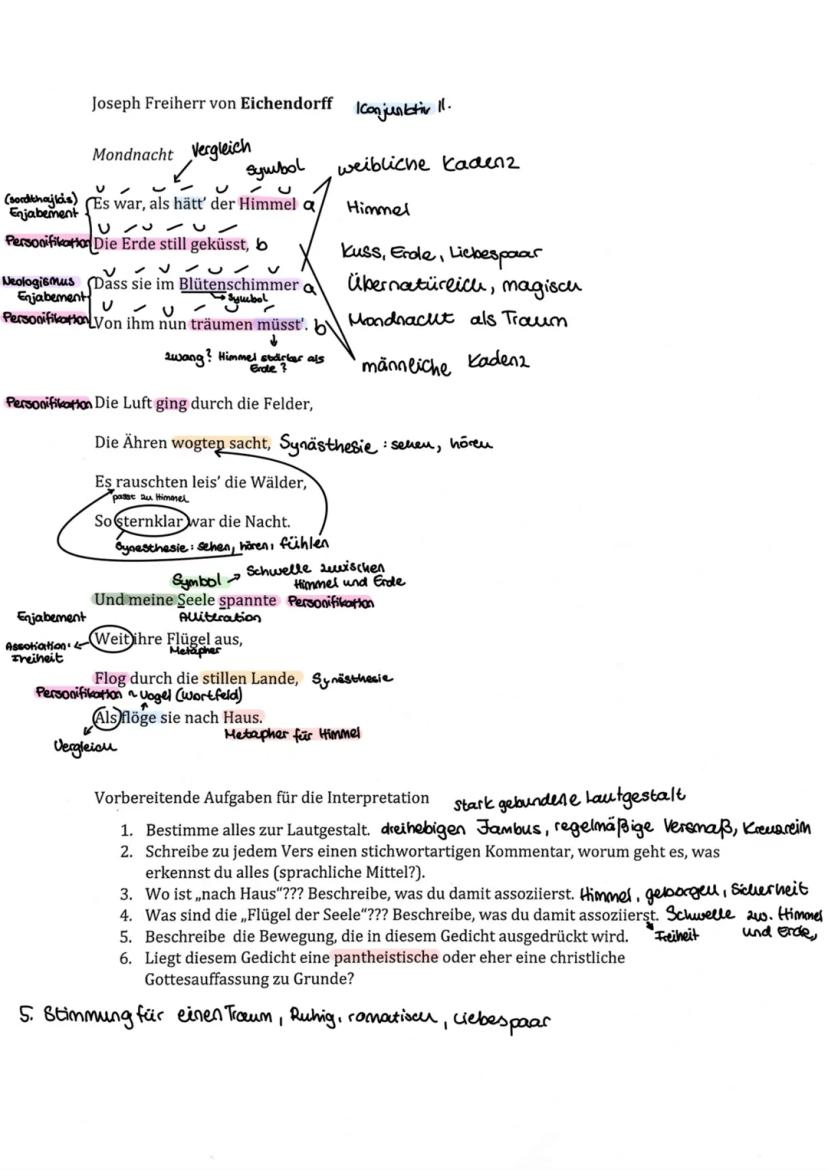 Joseph Freiherr von Eichendorff Konjunktiv II.
Mondnacht Vergleich
Symbol weibliche Kadenz
(sordithajlás) Es war, als hätt' der Himmel a Himmel
Enjabement
Personifikation Die Erde still geküsst, b Kuss, Erde, Liebespaar
Neologismus Dass sie im Blütenschimmer a Übernatürlich, magisch
Enjabement Symbol
Personifikation Von ihm nun träumen müsst'. b Mondnacht als Traum
zwang? Himmel stärker als
Erde?
männliche Kadenz
Personifikation Die Luft ging durch die Felder,
Die Ähren wogten sacht, Synästhesie: sehen, hören
Es rauschten leis' die Wälder,
passt zu Himmel
So sternklar war die Nacht.
Synesthesie: sehen, hören, fühlen
Symbol Schwelle zwischen
Himmel und Erde
Und meine Seele spannte Personifikation
Enjabement Alliteration
Assotiation: Weit ihre Flügel aus,
Freiheit Metapher
Flog durch die stillen Lande, Synästhesie
Personifikation ~ Vogel (Wortfeld)
Als flöge sie nach Haus.
Vergleich Metapher für Himmel
Vorbereitende Aufgaben für die Interpretation stark gebundene Lautgestalt
1. Bestimme alles zur Lautgestalt. dreihebigen Jambus, regelmäßige Versmaß, Kreuzreim
2. Schreibe zu jedem Vers einen stichwortartigen Kommentar, worum geht es, was
erkennst du alles (sprachliche Mittel?).
3. Wo ist „nach Haus"??? Beschreibe, was du damit assoziierst. Himmel, geborgen, Sicherheit
4. Was sind die „Flügel der Seele"??? Beschreibe, was du damit assoziierst. Schwelle zw. Himmel
5. Beschreibe die Bewegung, die in diesem Gedicht ausgedrückt wird. Freiheit und Erde,
6. Liegt diesem Gedicht eine pantheistische oder eher eine christliche
Gottesauffassung zu Grunde?
5. Stimmung für einen Traum, Ruhig, romatisch, Liebespaar